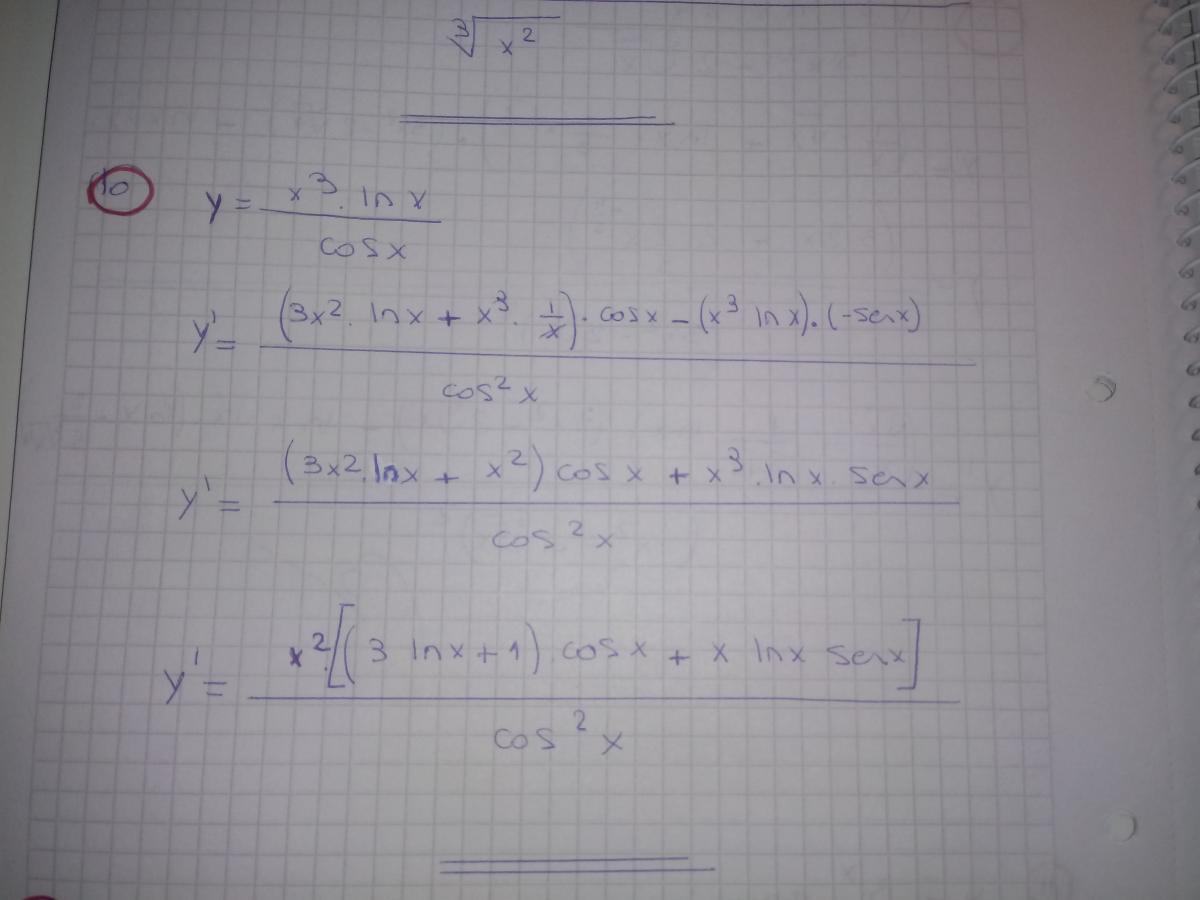 ∛x²
10 y = x³ · ln x / cos x
y' = (3x² · ln x + x³ · 1/x) · cos x − (x³ ln x) · (−sen x) / cos² x
y' = (3x² · ln x + x²) cos x + x³ · ln x · sen x / cos² x
y' = x² · [(3 ln x + 1) cos x + x ln x sen x] / cos² x